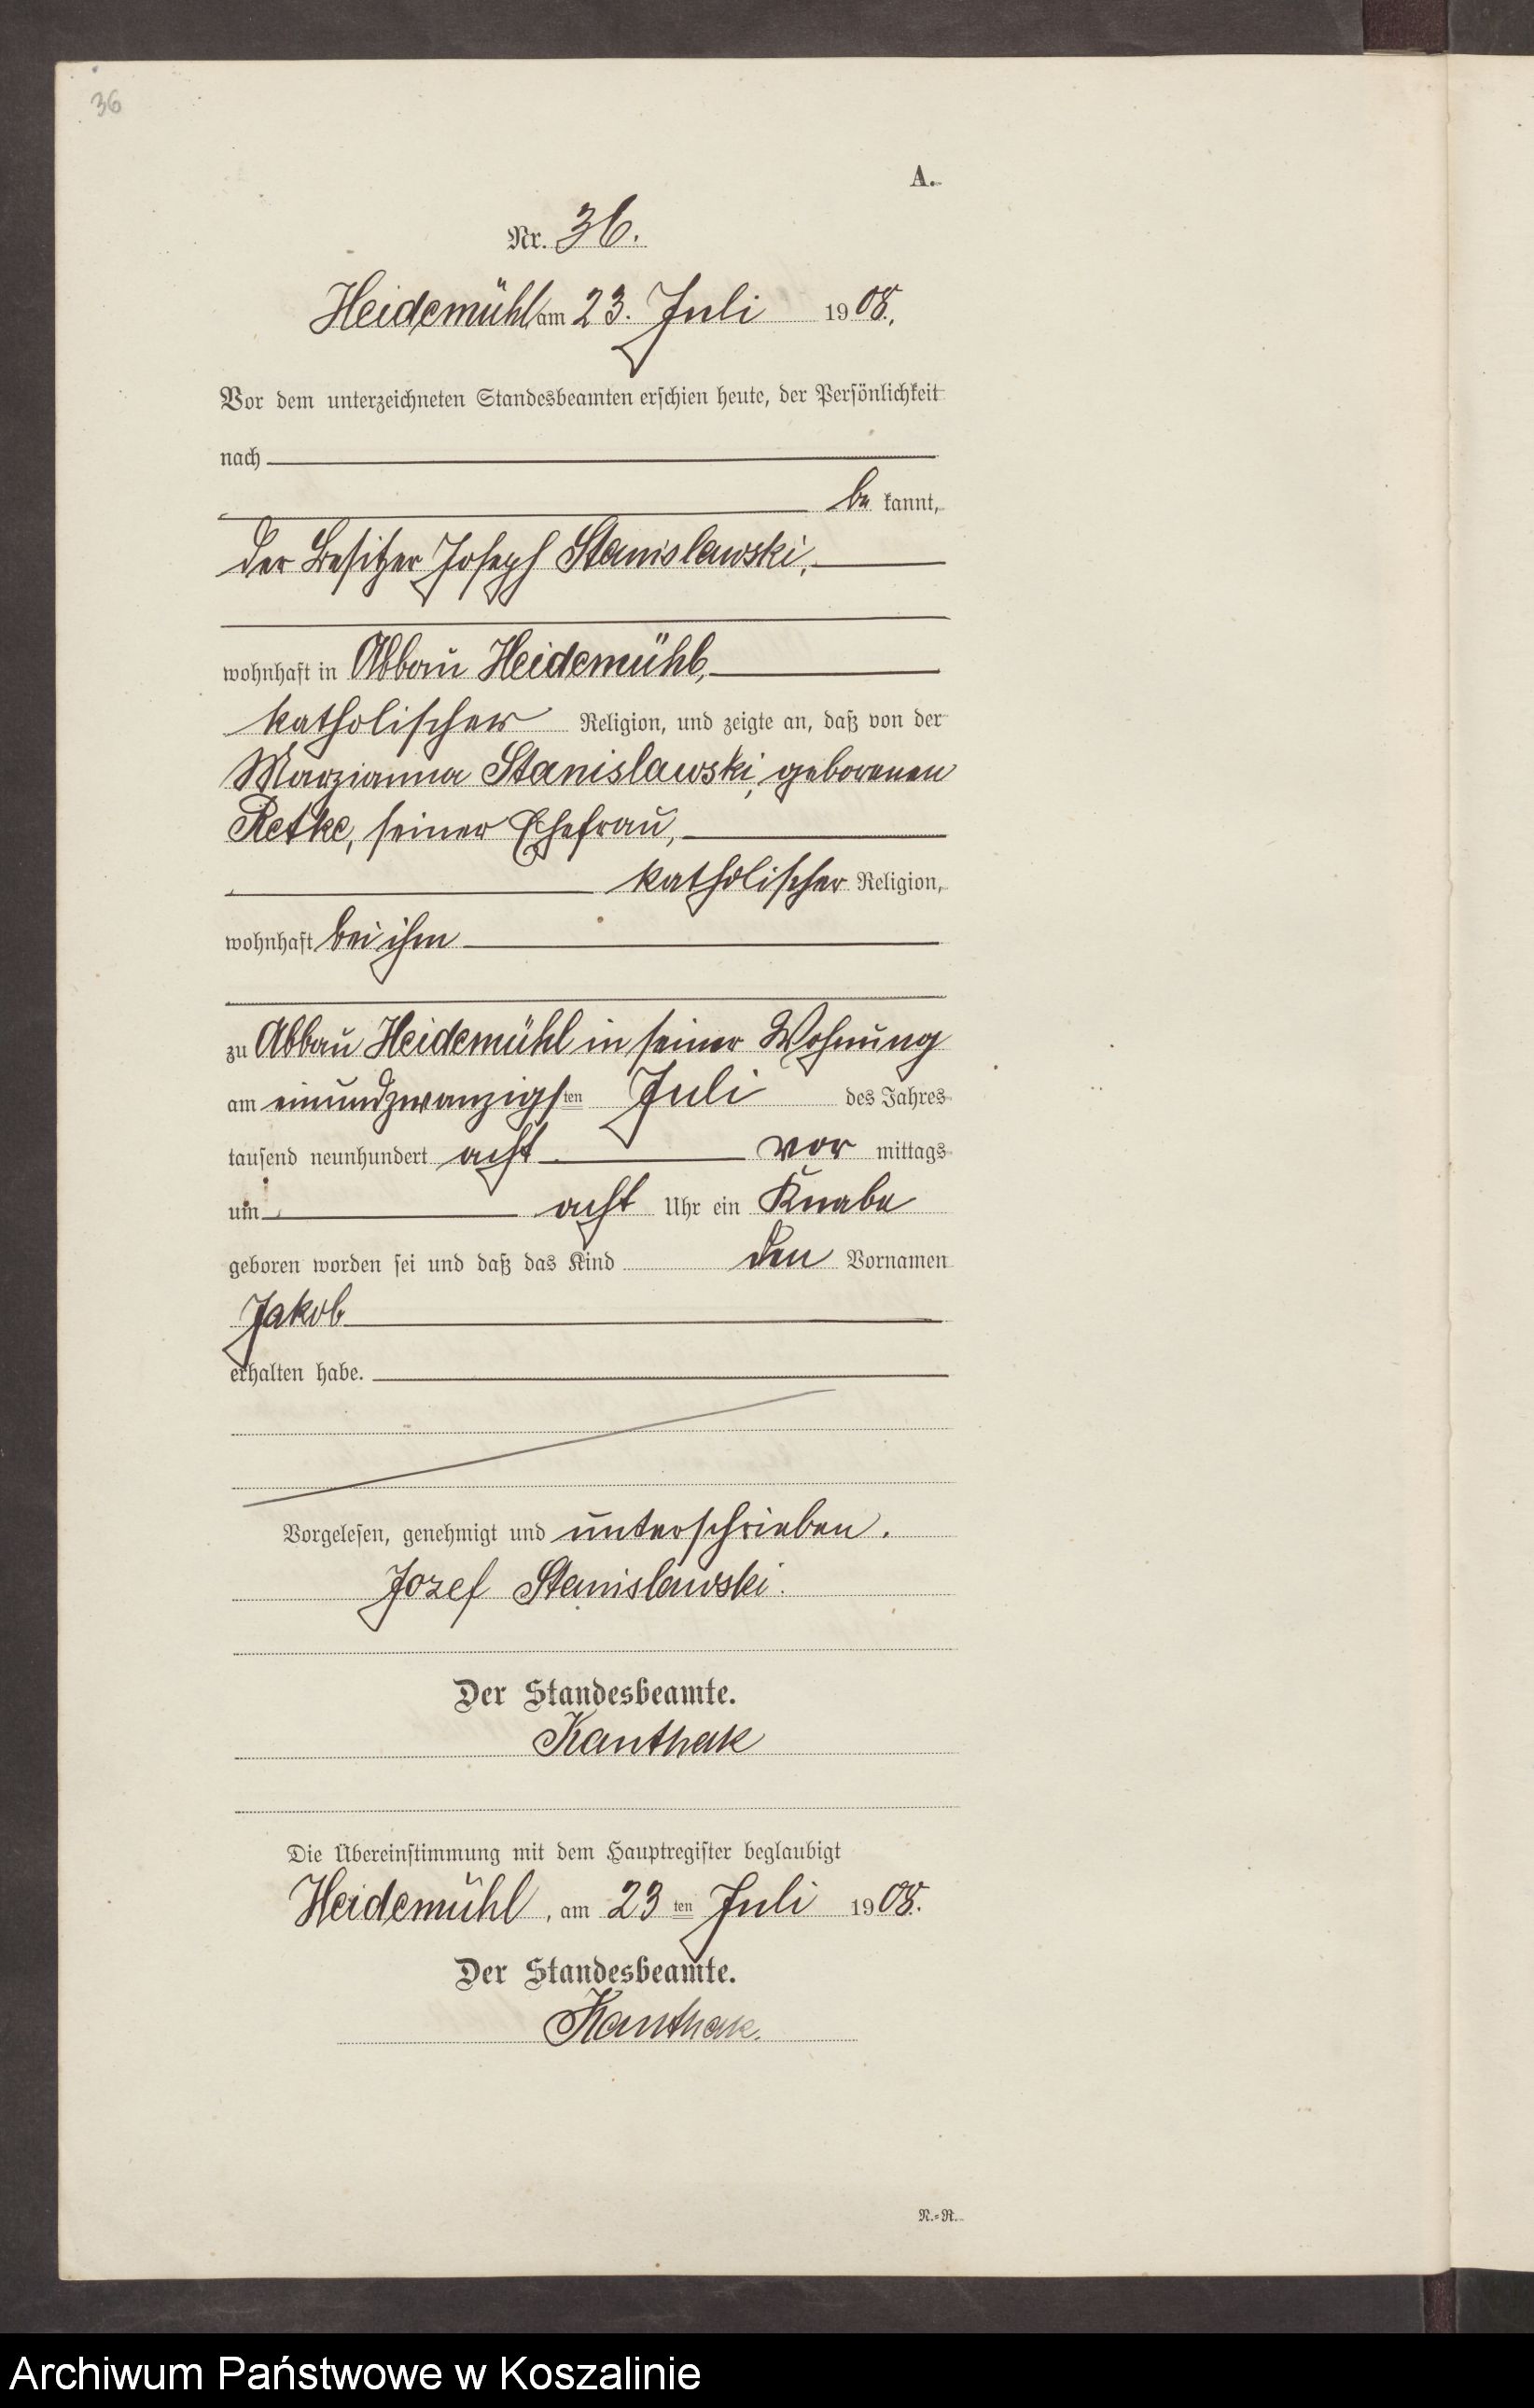 36
A.
Nr. 36.
Heidemühl am 23. Juli 1908.
Vor dem unterzeichneten Standesbeamten erschien heute, der Persönlichkeit
nach
be kannt,
der Besitzer Joseph Stanislawski,
wohnhaft in Abbau Heidemühl,
katholischer Religion, und zeigte an, daß von der
Marzianna Stanislawski, geborenen
Retke, seiner Ehefrau,
katholischer Religion,
wohnhaft bei ihm
zu Abbau Heidemühl in seiner Wohnung
am einundzwanzigsten Juli des Jahres
tausend neunhundert acht vor mittags
um acht Uhr ein Knabe
geboren worden sei und daß das Kind den Vornamen
Jakob
erhalten habe.
Vorgelesen, genehmigt und unterschrieben.
Jozef Stanislawski.
Der Standesbeamte.
Kanthak
Die Übereinstimmung mit dem Hauptregister beglaubigt
Heidemühl, am 23 ten Juli 1908.
Der Standesbeamte.
Kanthak.
N.=R.
Archiwum Państwowe w Koszalinie